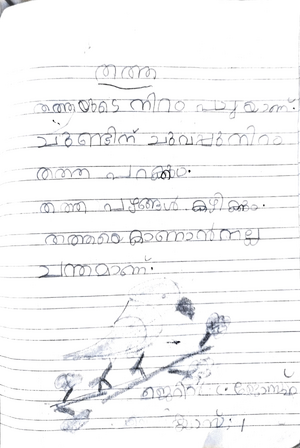 തത്ത
തത്തയുടെ നിറം പച്ചയാണ്.
ചുണ്ടിന് ചുവപ്പുനിറം
തത്ത പറക്കും.
തത്ത പഴങ്ങൾ കഴിക്കും.
തത്തയെ കാണാൻ നല്ല
ചന്തമാണ്.
ക്ലാസ്: 1